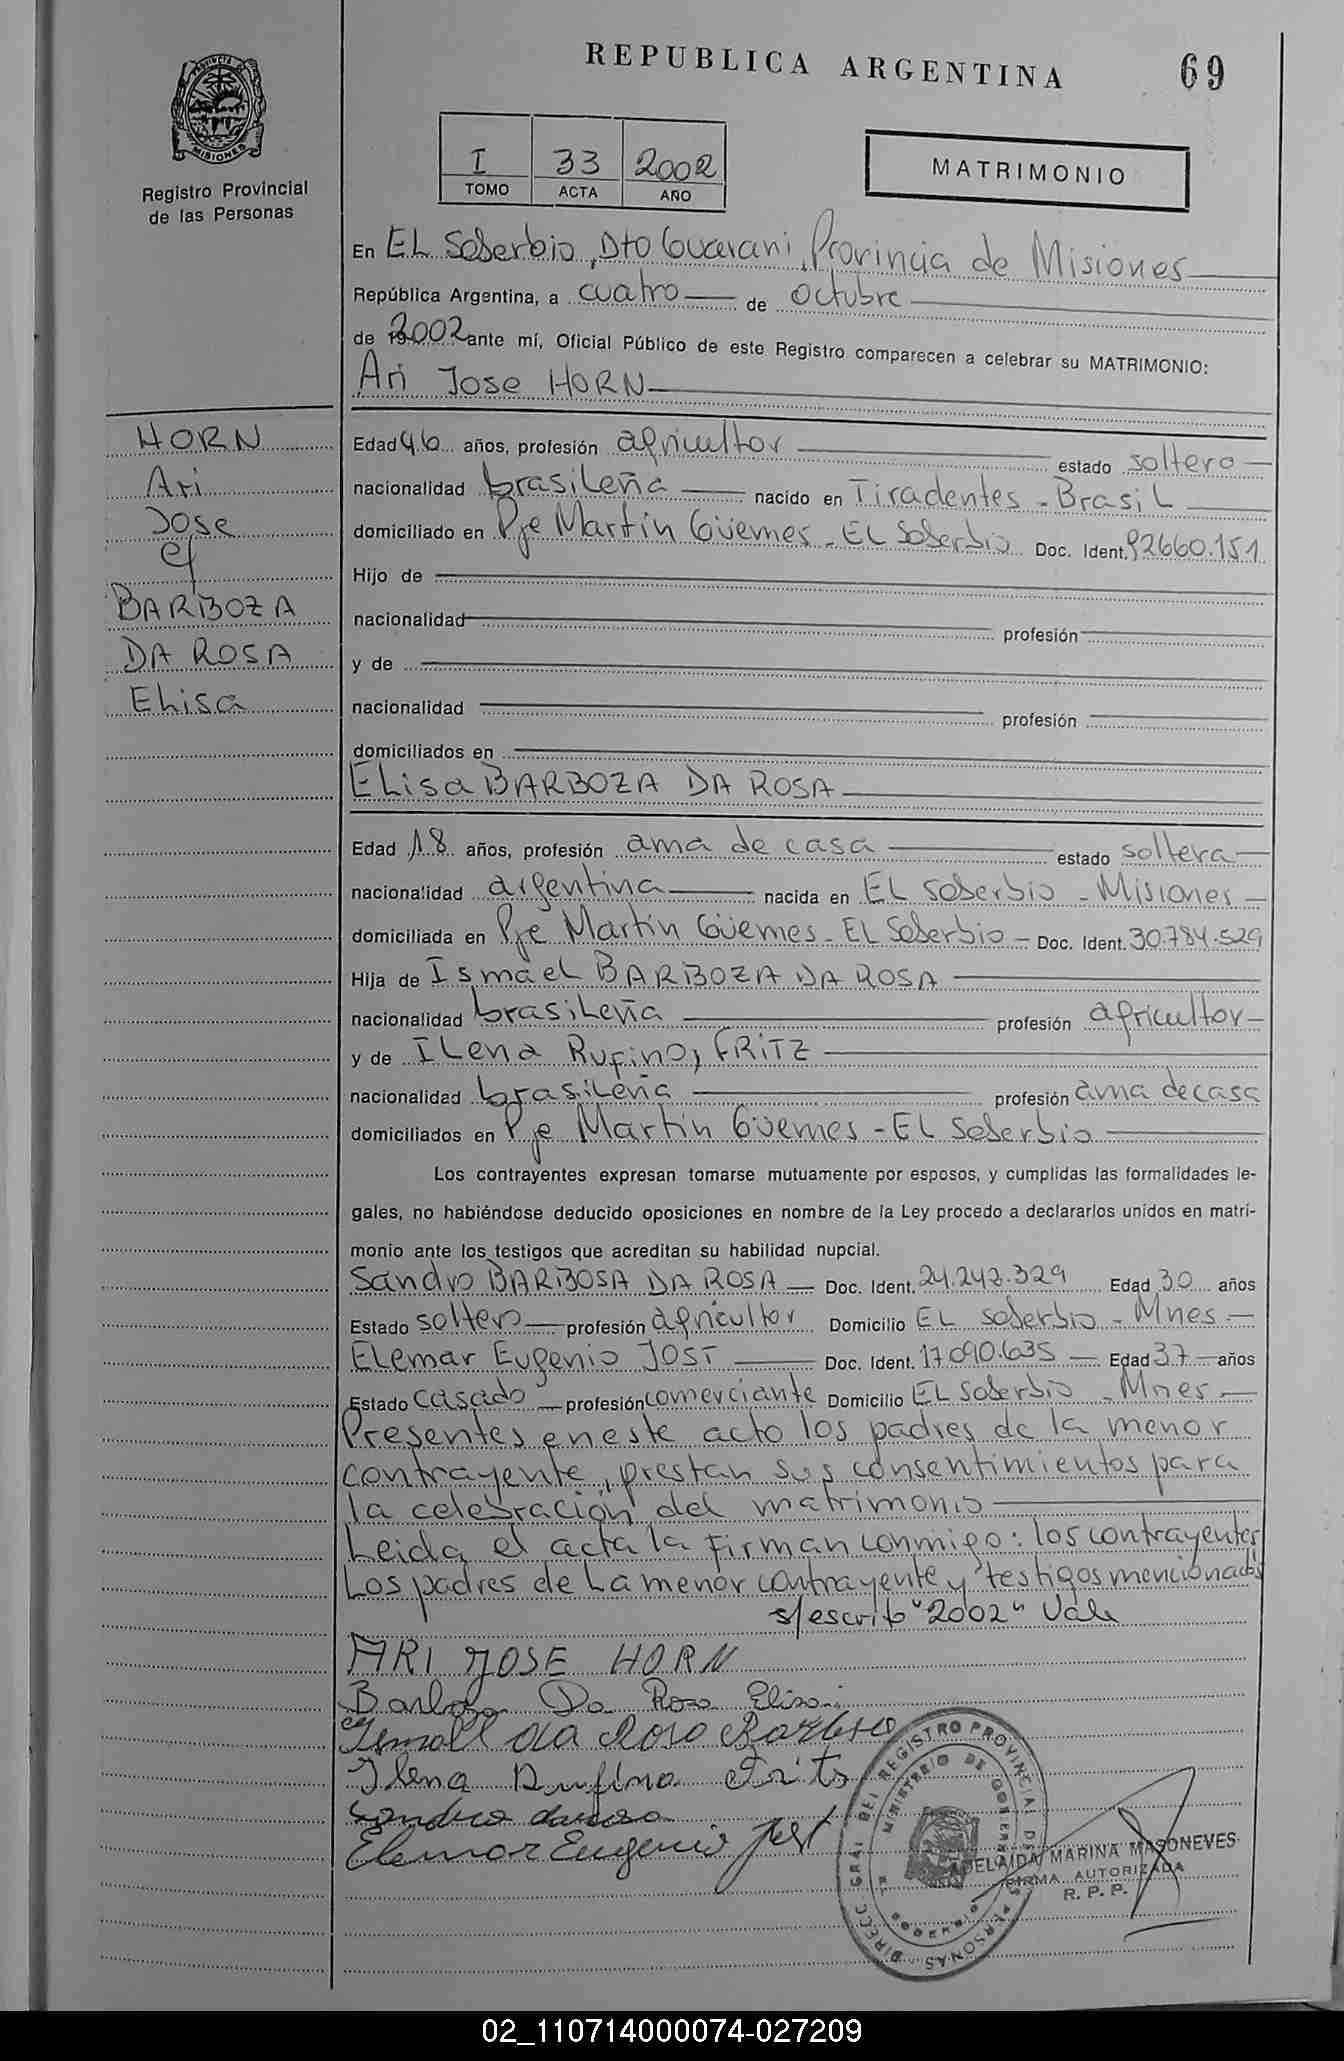 REPUBLICA ARGENTINA
69
PROVINCIA DE
MISIONES
Registro Provincial
de las Personas
I 33 2002
TOMO ACTA AÑO
MATRIMONIO
En EL Soberbio, Dto Guarani, Provincia de Misiones
República Argentina, a cuatro de octubre
de 2002 ante mí, Oficial Público de este Registro comparecen a celebrar su MATRIMONIO:
Ari Jose HORN
HORN
Ari
Jose
c/
BARBOZA
DA ROSA
Elisa
Edad 46 años, profesión agricultor estado soltero
nacionalidad brasileña nacido en Tiradentes - Brasil
domiciliado en Pje Martín Güemes - EL Soberbio Doc. Ident. 92660.151
Hijo de
nacionalidad profesión
y de
nacionalidad profesión
domiciliados en
Elisa BARBOZA DA ROSA
Edad 18 años, profesión ama de casa estado soltera
nacionalidad argentina nacida en EL Soberbio - Misiones
domiciliada en Pje Martín Güemes - EL Soberbio - Doc. Ident. 30.784.529
Hija de Ismael BARBOZA DA ROSA
nacionalidad brasileña profesión agricultor
y de ILena Rufino, FRITZ
nacionalidad brasileña profesión ama de casa
domiciliados en Pje Martín Güemes - EL Soberbio
Los contrayentes expresan tomarse mutuamente por esposos, y cumplidas las formalidades le-
gales, no habiéndose deducido oposiciones en nombre de la Ley procedo a declararlos unidos en matri-
monio ante los testigos que acreditan su habilidad nupcial.
Sandro BARBOSA DA ROSA Doc. Ident. 24.243.329 Edad 30 años
Estado soltero profesión agricultor Domicilio EL Soberbio - Mnes
ELemar Eugenio JOST Doc. Ident. 17.090.635 Edad 37 años
Estado casado profesión comerciante Domicilio EL Soberbio - Mnes
Presentes en este acto los padres de la menor
contrayente, prestan sus consentimientos para
la celebración del matrimonio
Leida el acta la firman conmigo: los contrayentes,
Los padres de la menor contrayente y testigos mencionados
s/escrito "2002" Vale
ARI JOSE HORN
Barboza Da Rosa Elisa
Ismael da Rosa Barboza
Ilena Rufino Frits
Sandro darosa
Elemar Eugenio Jost
DIRECC. GRAL. DEL REGISTRO PROVINCIAL DE LAS PERSONAS
MINISTERIO DE GOBIERNO
ADELAIDA MARINA MASONEVES
FIRMA AUTORIZADA
R. P. P.
02_110714000074-027209